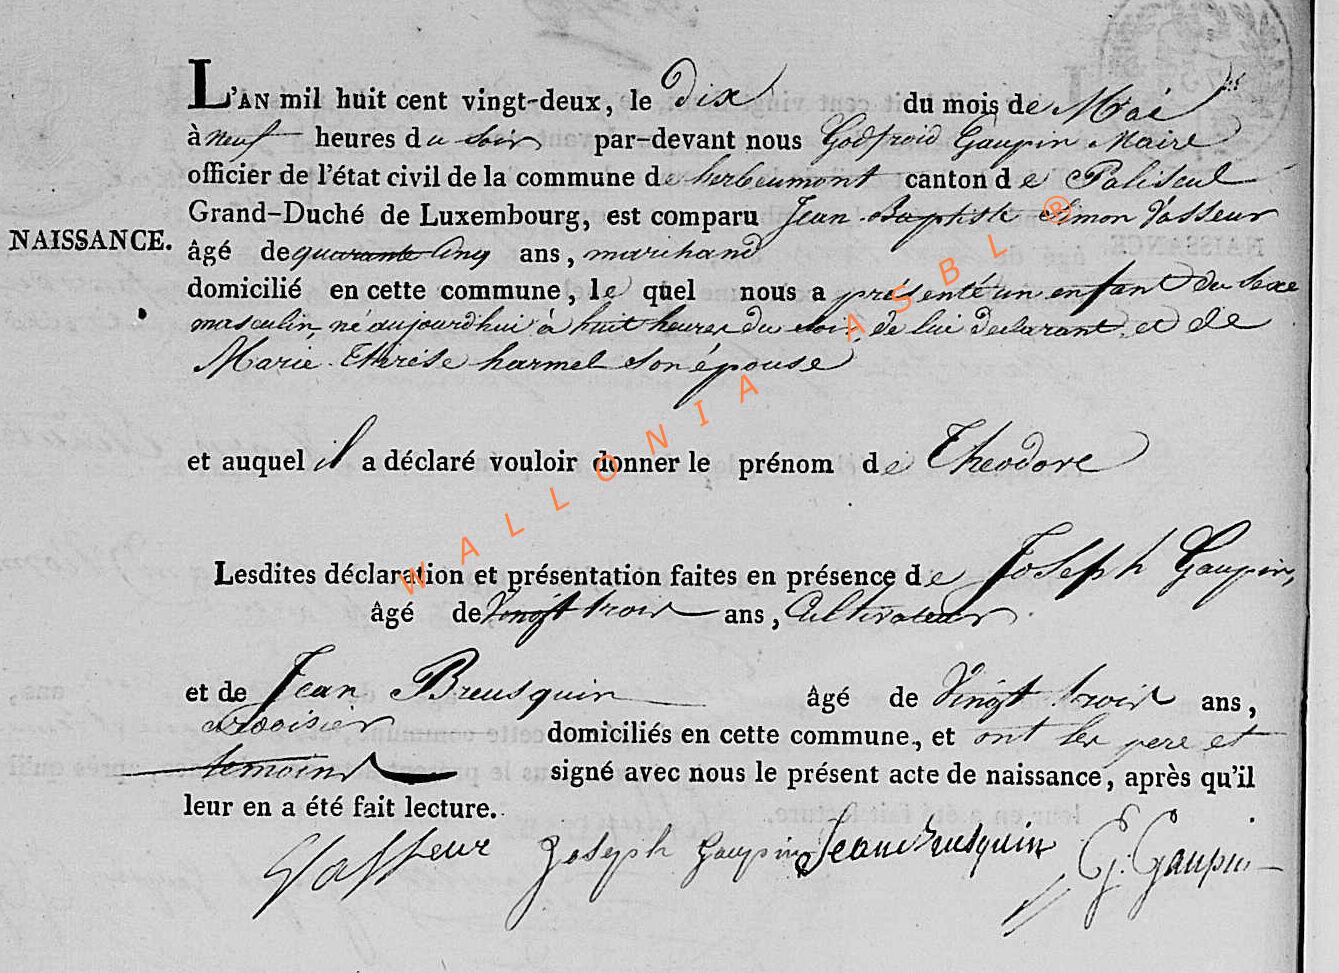 L'AN mil huit cent vingt-deux, le dix du mois de Mai
à neuf heures du soir par-devant nous Godfroid Gaupin Maire
officier de l'état civil de la commune de herbeumont canton de Paliseul
Grand-Duché de Luxembourg, est comparu Jean Baptiste Simon Vasseur
NAISSANCE. âgé de quarante cinq ans, marchand
domicilié en cette commune, le quel nous a présenté un enfant du sexe
masculin, né aujourd'hui à huit heures du soir, de lui declarant et de
Marie Therese harmel son épouse
et auquel il a déclaré vouloir donner le prénom de Theodore
Lesdites déclaration et présentation faites en présence de Joseph Gaupin,
âgé de vingt trois ans, Cultivateur
et de Jean Breusquin âgé de vingt trois ans,
domiciliés en cette commune, et ont les pere et
temoins signé avec nous le présent acte de naissance, après qu'il
leur en a été fait lecture.
Vasseur Joseph Gaupin Jean Breusquin G. Gaupin
WALLONIA ASBL ®